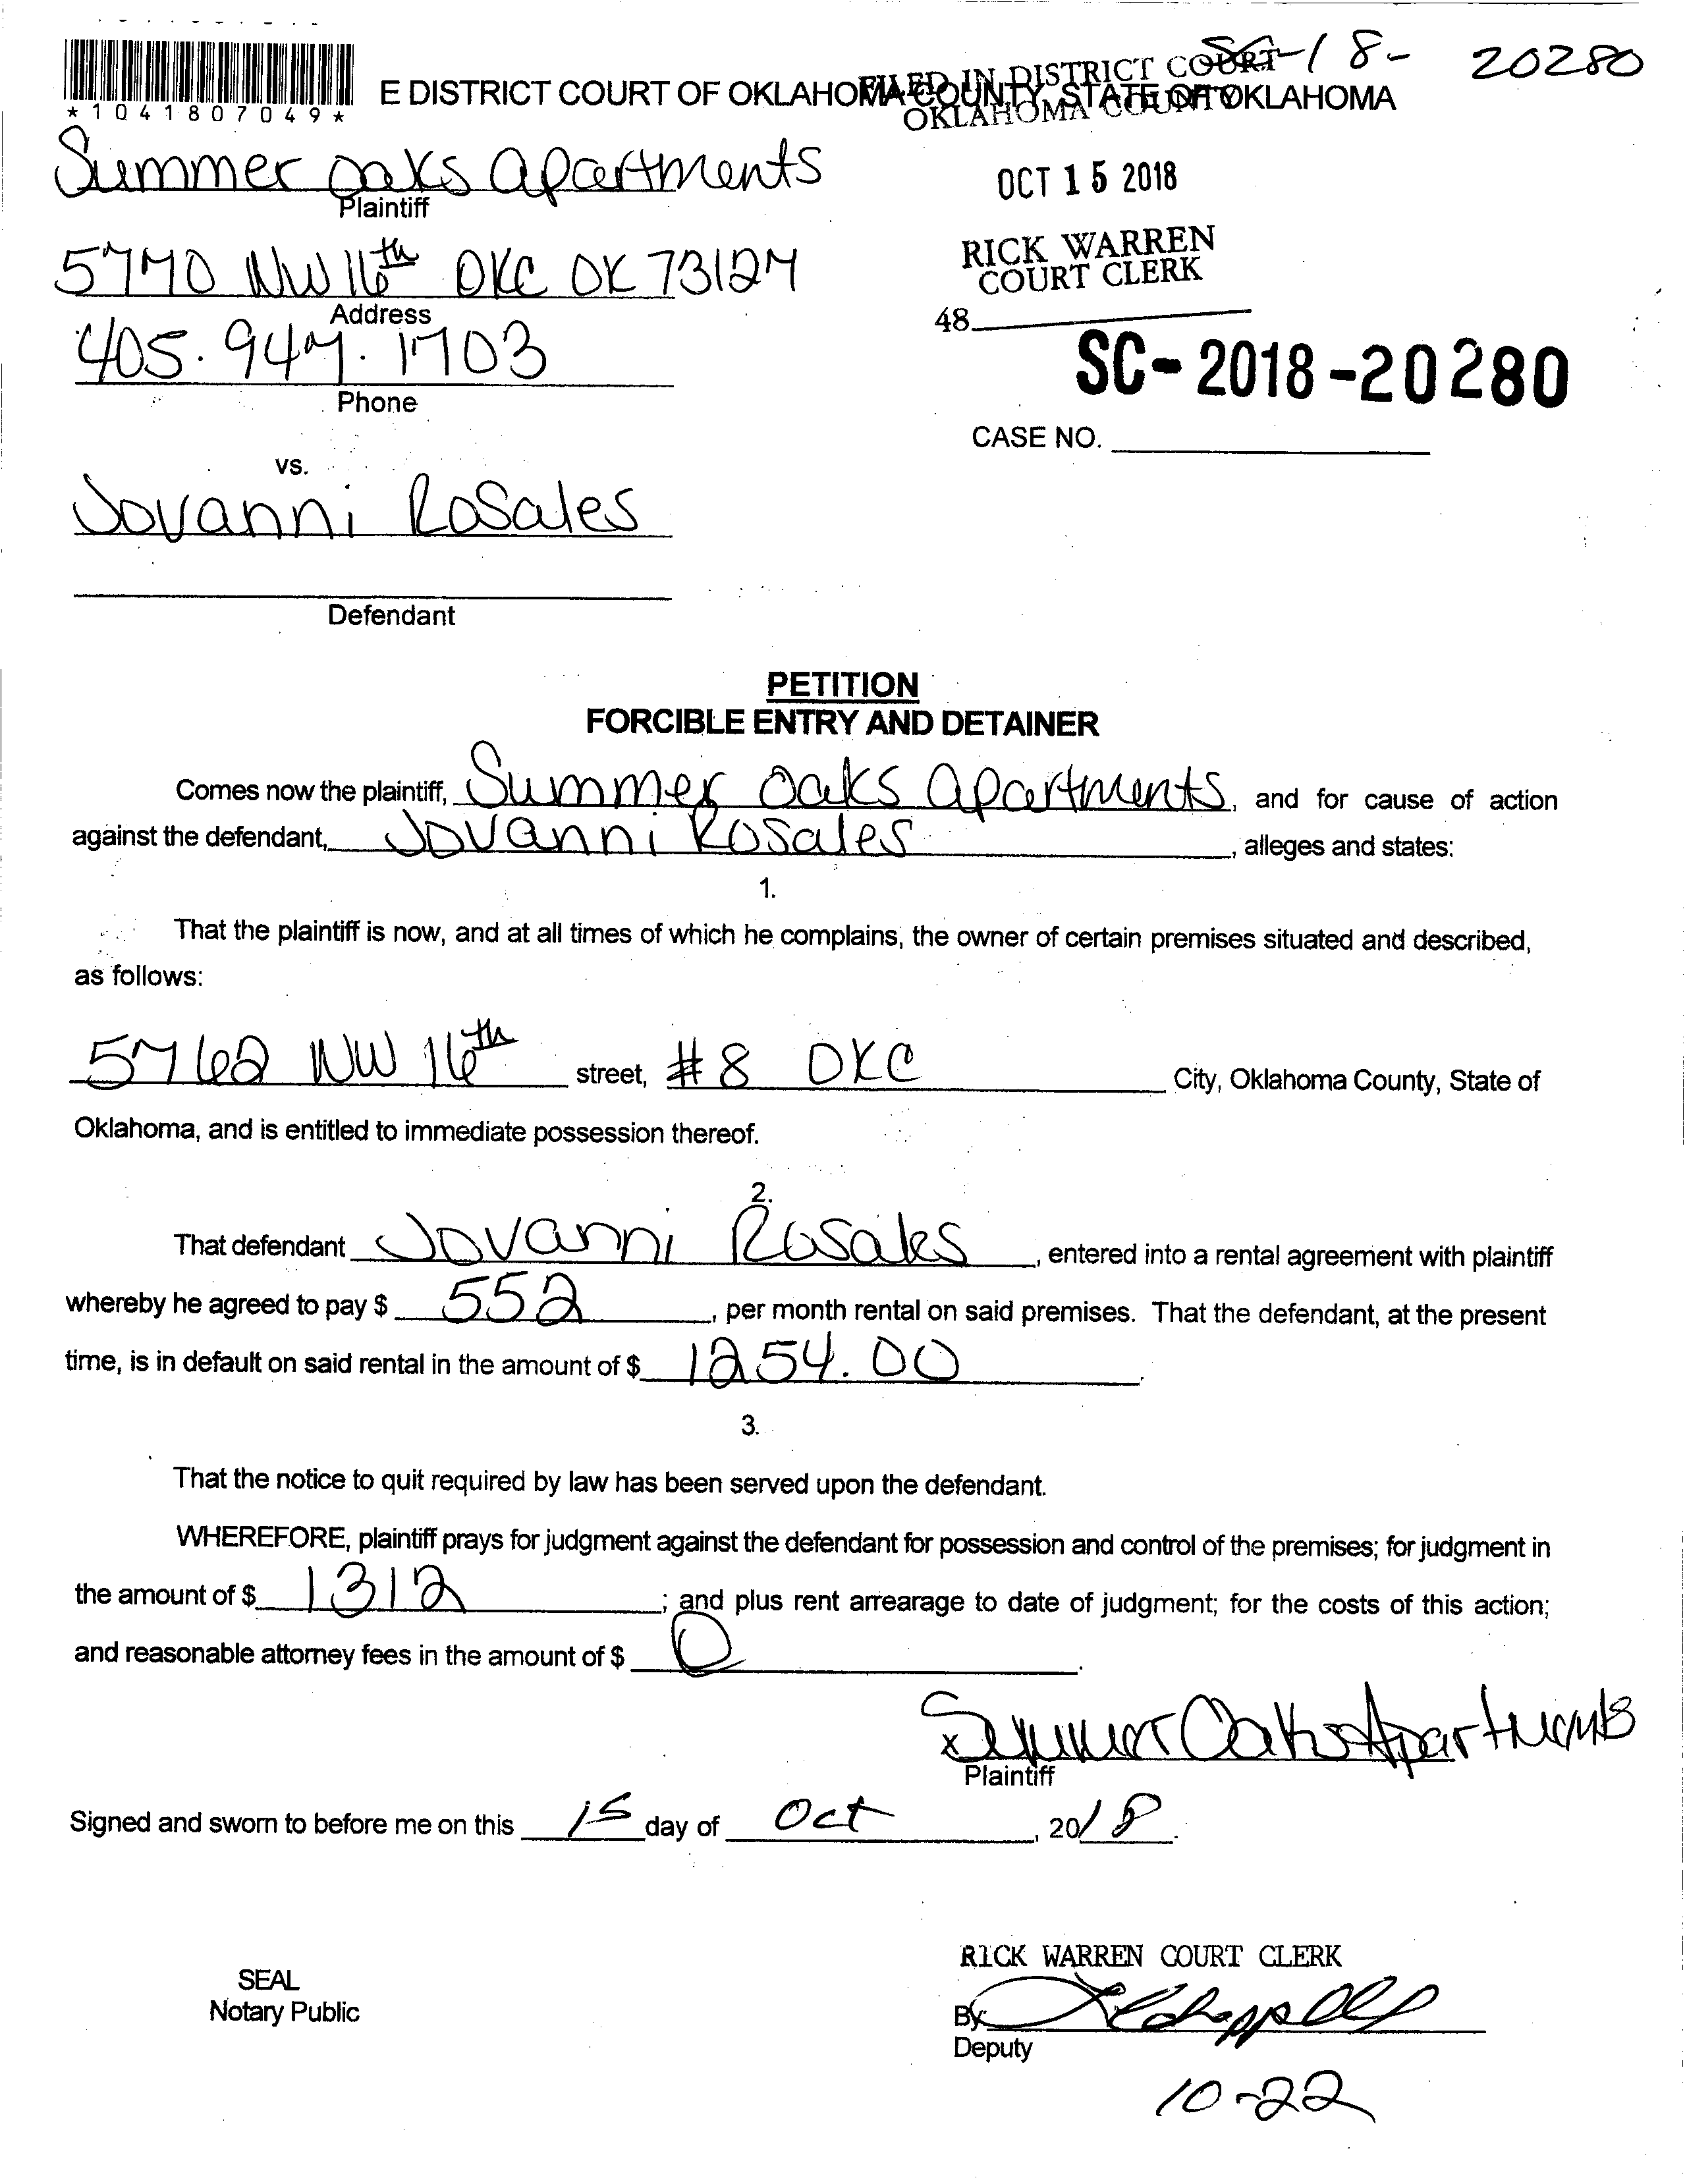 SC-18- 20280
E DISTRICT COURT OF OKLAHOMA COUNTY, STATE OF OKLAHOMA
FILED IN DISTRICT COURT
OKLAHOMA COUNTY
*1041807049*
Summer oaks apartments
Plaintiff
OCT 15 2018
5770 NW 16th OKC OK 73127
Address
RICK WARREN
COURT CLERK
48
405.947.1703
Phone
SC-2018-20280
CASE NO.
vs.
Jovanni Rosales
Defendant
PETITION
FORCIBLE ENTRY AND DETAINER
Comes now the plaintiff, Summer oaks apartments, and for cause of action
against the defendant, Jovanni Rosales, alleges and states:
1.
That the plaintiff is now, and at all times of which he complains, the owner of certain premises situated and described,
as follows:
5762 NW 16th street, #8 OKC City, Oklahoma County, State of
Oklahoma, and is entitled to immediate possession thereof.
2.
That defendant Jovanni Rosales, entered into a rental agreement with plaintiff
whereby he agreed to pay $ 552, per month rental on said premises. That the defendant, at the present
time, is in default on said rental in the amount of $ 1254.00.
3.
That the notice to quit required by law has been served upon the defendant.
WHEREFORE, plaintiff prays for judgment against the defendant for possession and control of the premises; for judgment in
the amount of $ 1312; and plus rent arrearage to date of judgment; for the costs of this action;
and reasonable attorney fees in the amount of $ 0.
x Summer Oaks Apartments
Plaintiff
Signed and sworn to before me on this 15 day of Oct, 2018.
SEAL
Notary Public
RICK WARREN COURT CLERK
By
Deputy
10-22